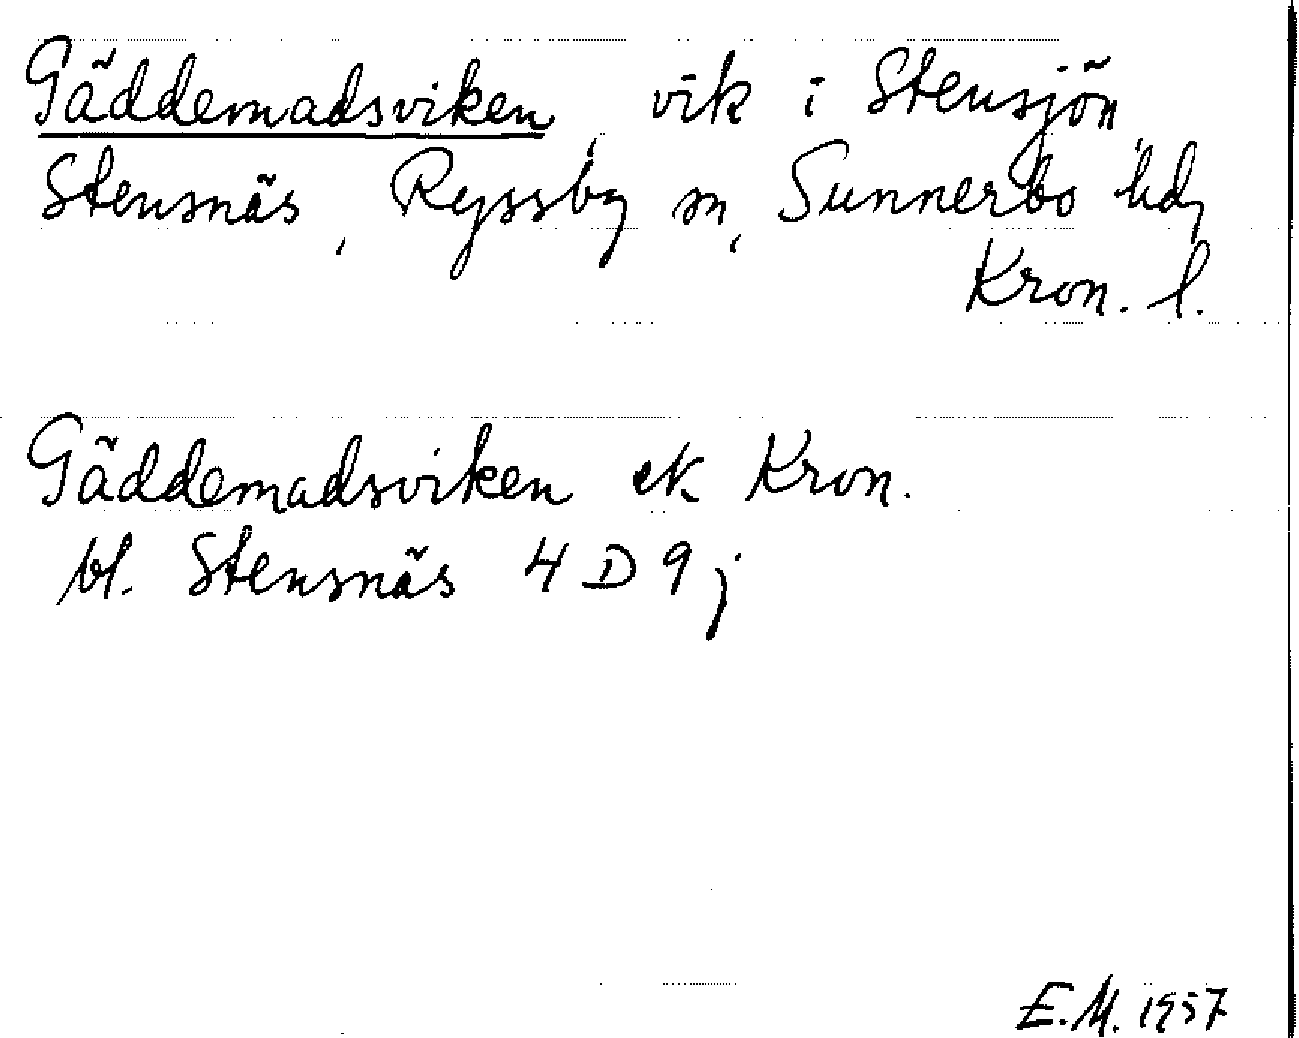 Gäddemadsviken, vik i Stensjön,
Stensnäs, Ryssby sn, Sunnerbo hd,
Kron. l.
Gäddemadsviken ek Kron.
bl. Stensnäs 4 D 9 j
E.M. 1957